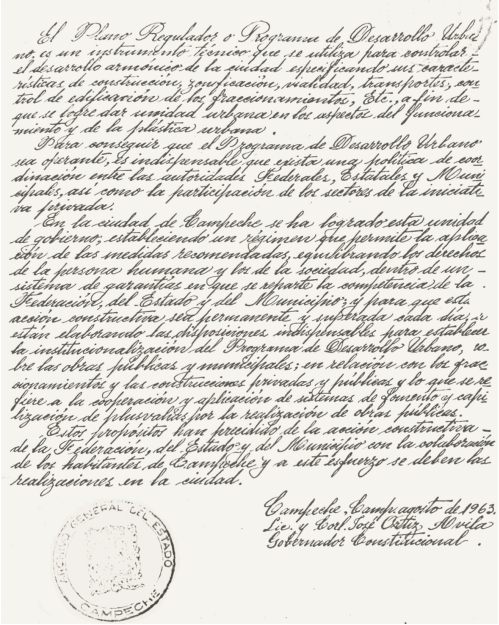 El Plano Regulador o Programa de Desarrollo Urba
no, es un instrumento técnico que se utiliza para controlar-
el desarrollo armónico de la ciudad especificando sus caracte-
rísticas de construcción, zonificación, vialidad, transportes, con
trol de edificación de los fraccionamientos, Etc., a fin de-
que se logre dar unidad urbana en los aspectos del funciona
miento y de la plástica urbana.
Para conseguir que el Programa de Desarrollo Urbano
sea operante, es indispensable que exista una política de coor
dinación entre las autoridades Federales, Estatales y Muni
cipales, así como la participación de los sectores de la iniciati
va privada.
En la ciudad de Campeche se ha logrado esta unidad
de gobierno, estableciendo un régimen que permite la aplica
ción de las medidas recomendadas, equilibrando los derechos
de la persona humana y los de la sociedad, dentro de un-
sistema de garantías en que se reparte la competencia de la
Federación, del Estado y del Municipio; y para que esta
acción constructiva sea permanente y superada cada día, se
están elaborando las disposiciones indispensables para establecer
la institucionalización del Programa de Desarrollo Urbano, so-
bre las obras públicas y municipales; en relación con los frac
cionamientos y las construcciones privadas y públicas y lo que se re
fiere a la cooperación y aplicación de sistemas de fomento y capi
lización de plusvalías por la realización de obras públicas.
Estos propósitos han presidido de la acción constructiva-
de la Federación, del Estado y del Municipio con la colaboración
de los habitantes de Campeche y a este esfuerzo se deben las
realizaciones en la ciudad.
Campeche, Camp. agosto de 1963.
Lic. y Corl. José Ortiz Avila
Gobernador Constitucional.
ARCHIVO GENERAL DEL ESTADO
CAMPECHE